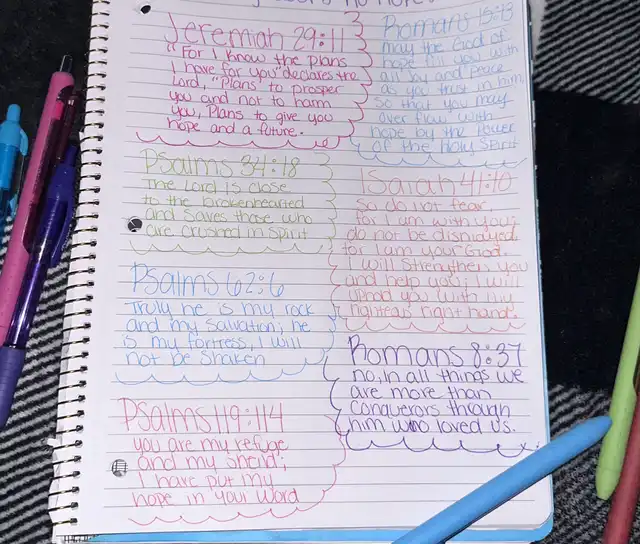 no more
Jeremiah 29:11
"For I know the plans
I have for you" declares the
Lord, "Plans to prosper
you and not to harm
you, Plans to give you
hope and a future.
Psalms 34:18
The Lord is close
to the brokenhearted
and saves those who
are crushed in spirit
Psalms 62:6
Truly he is my rock
and my salvation; he
is my fortress, I will
not be shaken
Psalms 119:114
you are my refuge
and my sheild;
I have put my
hope in your word
Romans 15:13
may the God of
hope fill you with
all joy and peace
as you trust in him,
so that you may
over flow with
hope by the Power
of the Holy Spirit
Isaiah 41:10
so do not fear,
for I am with you;
do not be dismayed,
for I am your God.
I will strengthen you
and help you; I will
uphold you with my
righteous right hand.
Romans 8:37
no, in all things we
are more than
conquerors through
him who loved us.